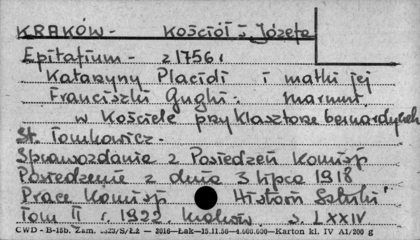 KRAKÓW - Kościół ś. Józefa
Epitafium - z 1756 r
Katarzyny Placidi i matki jej
Franciszki Gughi - marmur.
w Kościele przyklasztorze bernardynek
St. Tomkowicz.
Sprawozdanie z Posiedzeń Komisji
Posiedzenie z dnia 3 lipca 1918
Prace Komisji Histori Sztuki
Tom II r. 1922. Kraków. s. LXXIV
CWD - B-15b. Zam. S/Ł2 — 3016 — Łak — 15.11.56 — 4.000.000 — Karton kl. IV A1/200 g